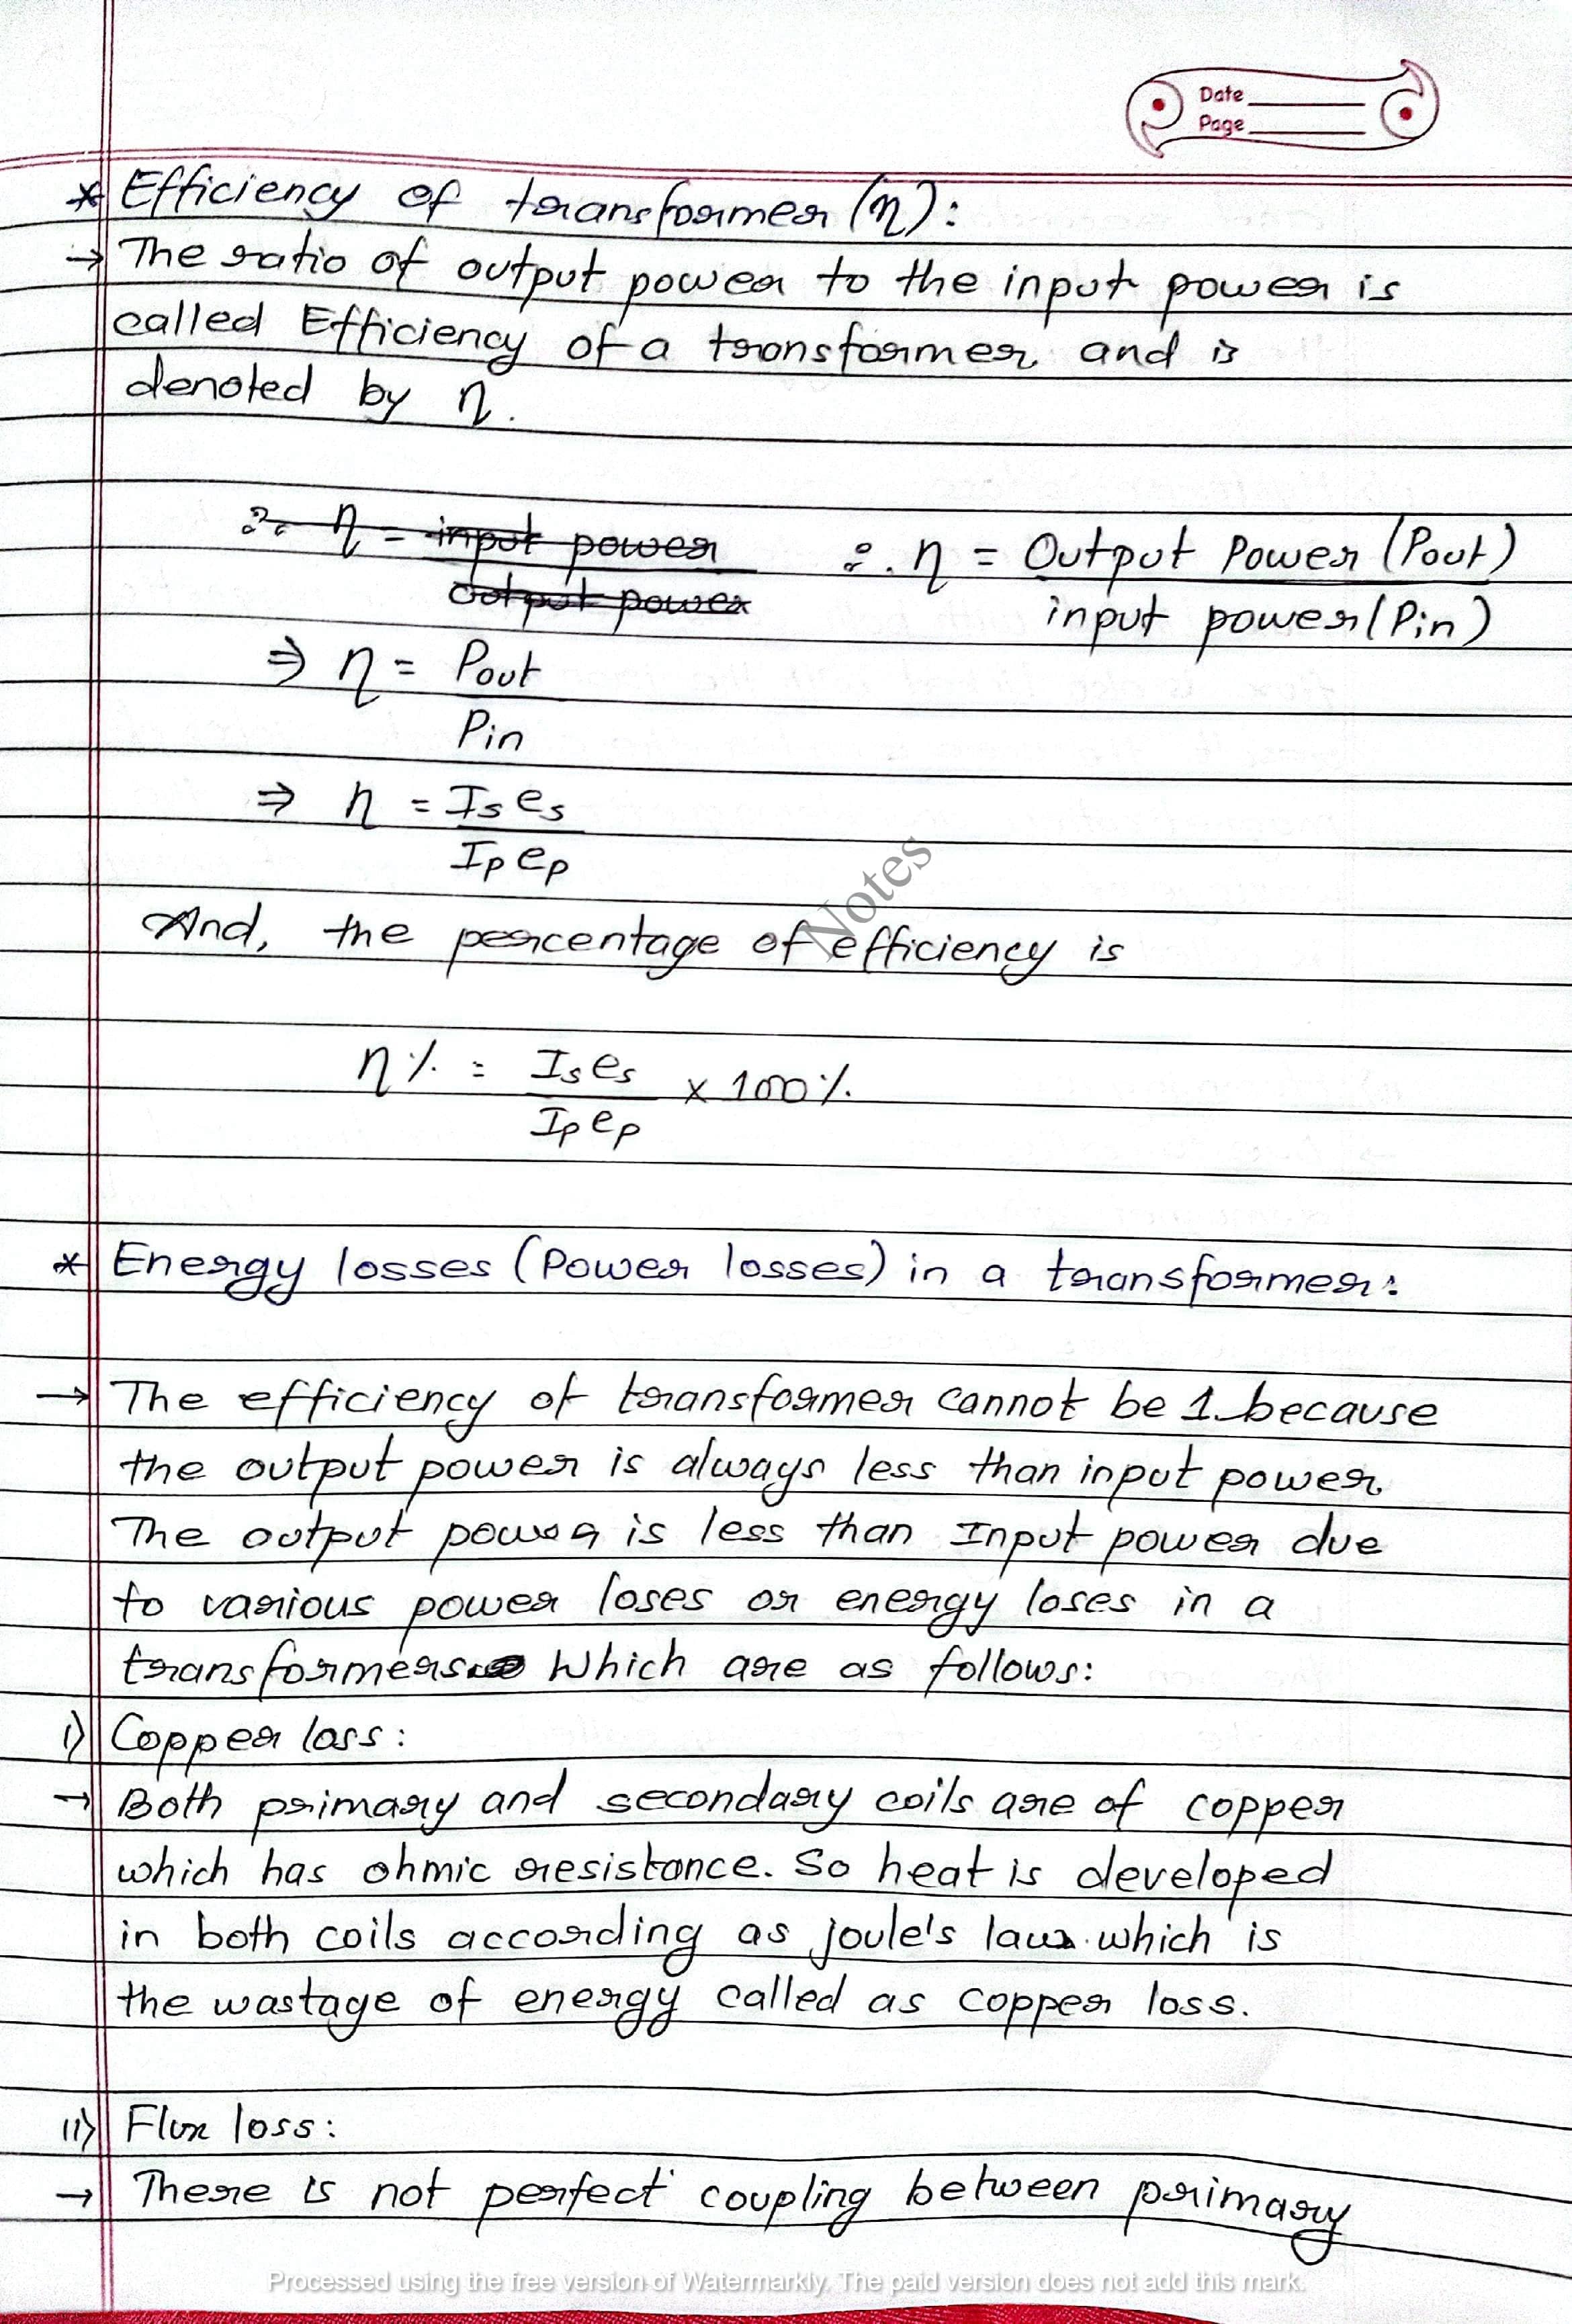 Date
Page
* Efficiency of transformer (η):
→ The ratio of output power to the input power is
called Efficiency of a transformer and is
denoted by η.
∴ η = input power / output power ∴ η = Output Power (Pout) / input power (Pin)
⇒ η = Pout / Pin
⇒ η = Is es / Ip ep
And, the percentage of efficiency is
η% = Is es / Ip ep × 100%
* Energy losses (Power losses) in a transformer:
→ The efficiency of transformer cannot be 1 because
the output power is always less than input power.
The output power is less than Input power due
to various power loses or energy loses in a
transformers Which are as follows:
i) Copper loss:
→ Both primary and secondary coils are of copper
which has ohmic resistance. So heat is developed
in both coils according as joule's law which is
the wastage of energy called as copper loss.
ii) Flux loss:
→ There is not perfect coupling between primary
Notes
Processed using the free version of Watermarkly. The paid version does not add this mark.